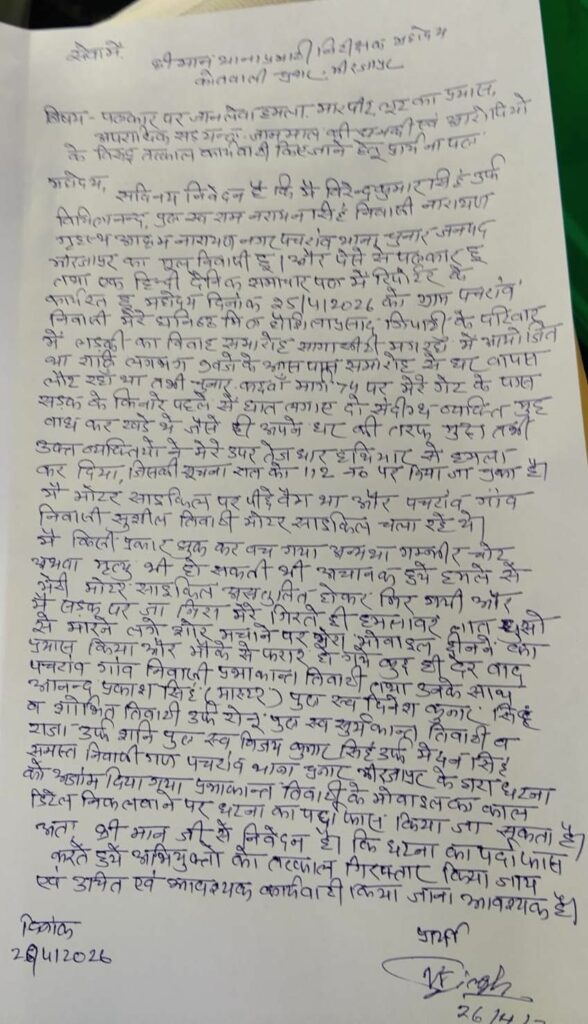 सेवामें,
श्रीमान थाना प्रभारी निरीक्षक महोदय
कोतवाली चुनार, मीरजापुर
विषय - पत्रकार पर जानलेवा हमला, मारपीट, लूट का प्रयास,
अपराधिक षडयन्त्र, जानमाल की धमकी एवं आरोपियो
के विरुद्ध तत्काल कार्यवाही किए जाने हेतु प्रार्थना पत्र
महोदय,
सविनय निवेदन है कि मै विरेन्द्र कुमार सिंह उर्फ
पुत्र स्व राम नरायन सिंह निवासी नारायण
आश्रम नारायण नगर पचरांव थाना चुनार जनपद
मीरजापुर का मूल निवासी हूं। और पेसे से पत्रकार हूं
तथा एक हिन्दी दैनिक समाचार पत्र में रिपोर्टर के
कार्यरत हूं महोदय दिनांक 25/4/2026 को शाम पचरांव
निवासी मेरे घनिष्ठ मित्र हौशिला प्रसाद त्रिपाठी के परिवार
में लड़की का विवाह समारोह मगरहाँ में आयोजित
था रात्रि लगभग बजे के आस पास समारोह से घर वापस
लौट रहा था तभी चुनार मार्ग 74 पर मेरे गेट के पास
सड़क के किनारे पहले से घात लगाए दो संदीग्ध व्यक्ति मुह
बाध कर खड़े थे जैसे ही अपने घर की तरफ मुड़ा तभी
उक्त व्यक्तियों ने मेरे उपर तेज धार हथियार से हमला
कर दिया, जिसकी सूचना रात को 112 नं० पर किया जा चुका है।
मै मोटर साइकिल पर पीछे बैठा था और पचरांव गांव
निवासी सुशील तिवारी मोटर साइकिल चला रहे थे।
मै किसी प्रकार झुक कर बच गया अन्यथा गम्भीर चोट
अथवा मृत्यु भी हो सकती थी अचानक हुये हमले से
मेरी मोटर साइकिल असंतुलित होकर गिर गयी और
मै सड़क पर जा गिरा मेरे गिरते ही हमलावर लात घुसो
से मारने लगे शोर मचाने पर मेरा मोबाइल छीनने का
प्रयास किया और मौके से फरार हो गये कुछ ही देर बाद
पचरांव गांव निवासी प्रभाकान्त तिवारी तथा उनके साथ
आनन्द प्रकाश सिंह (मास्टर) पुत्र स्व दिनेश कुमार सिंह
व शोभित तिवारी उर्फ सोनू पुत्र स्व सुर्यकान्त तिवारी व
राजा उर्फ शनि पुत्र स्व विजय कुमार सिंह उर्फ मेदन सिंह
समस्त निवासी गण पचरांव थाना चुनार मीरजापुर के द्वारा घटना
को अंजाम दिया गया प्रभाकान्त तिवारी के मोबाइल का काल
डिटेल निकलवाने पर घटना का पर्दा फास किया जा सकता है।
अतः श्रीमान जी से निवेदन है। कि घटना का पर्दा फास
करते हुये अभियुक्तो को तत्काल गिरफ्तार किया जाय
एवं उचित एवं आवश्यक कार्यवाही किया जाना आवश्यक है।
दिनांक
26/4/2026
प्रार्थी
VKSingh
26/4/2